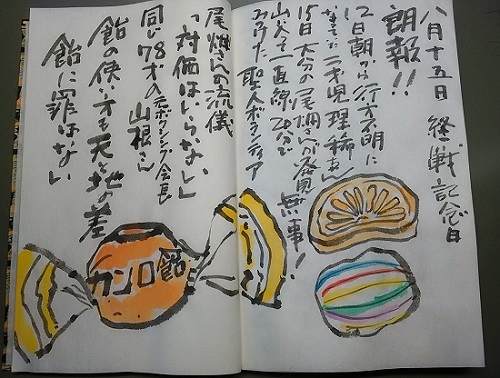 八月十五日 終戦記念日
朗報!!
12日朝から行方不明に
二才児理稀ちゃん
15日大分の尾畑さんが発見 無事!
一直線20分で
みつけた聖人ボランティア
尾畑さんの流儀
「対価はいらない」
元ボクシング会長
同じ78才の山根さん
飴の使い方も天と地の差
飴に罪はない
カンロ飴